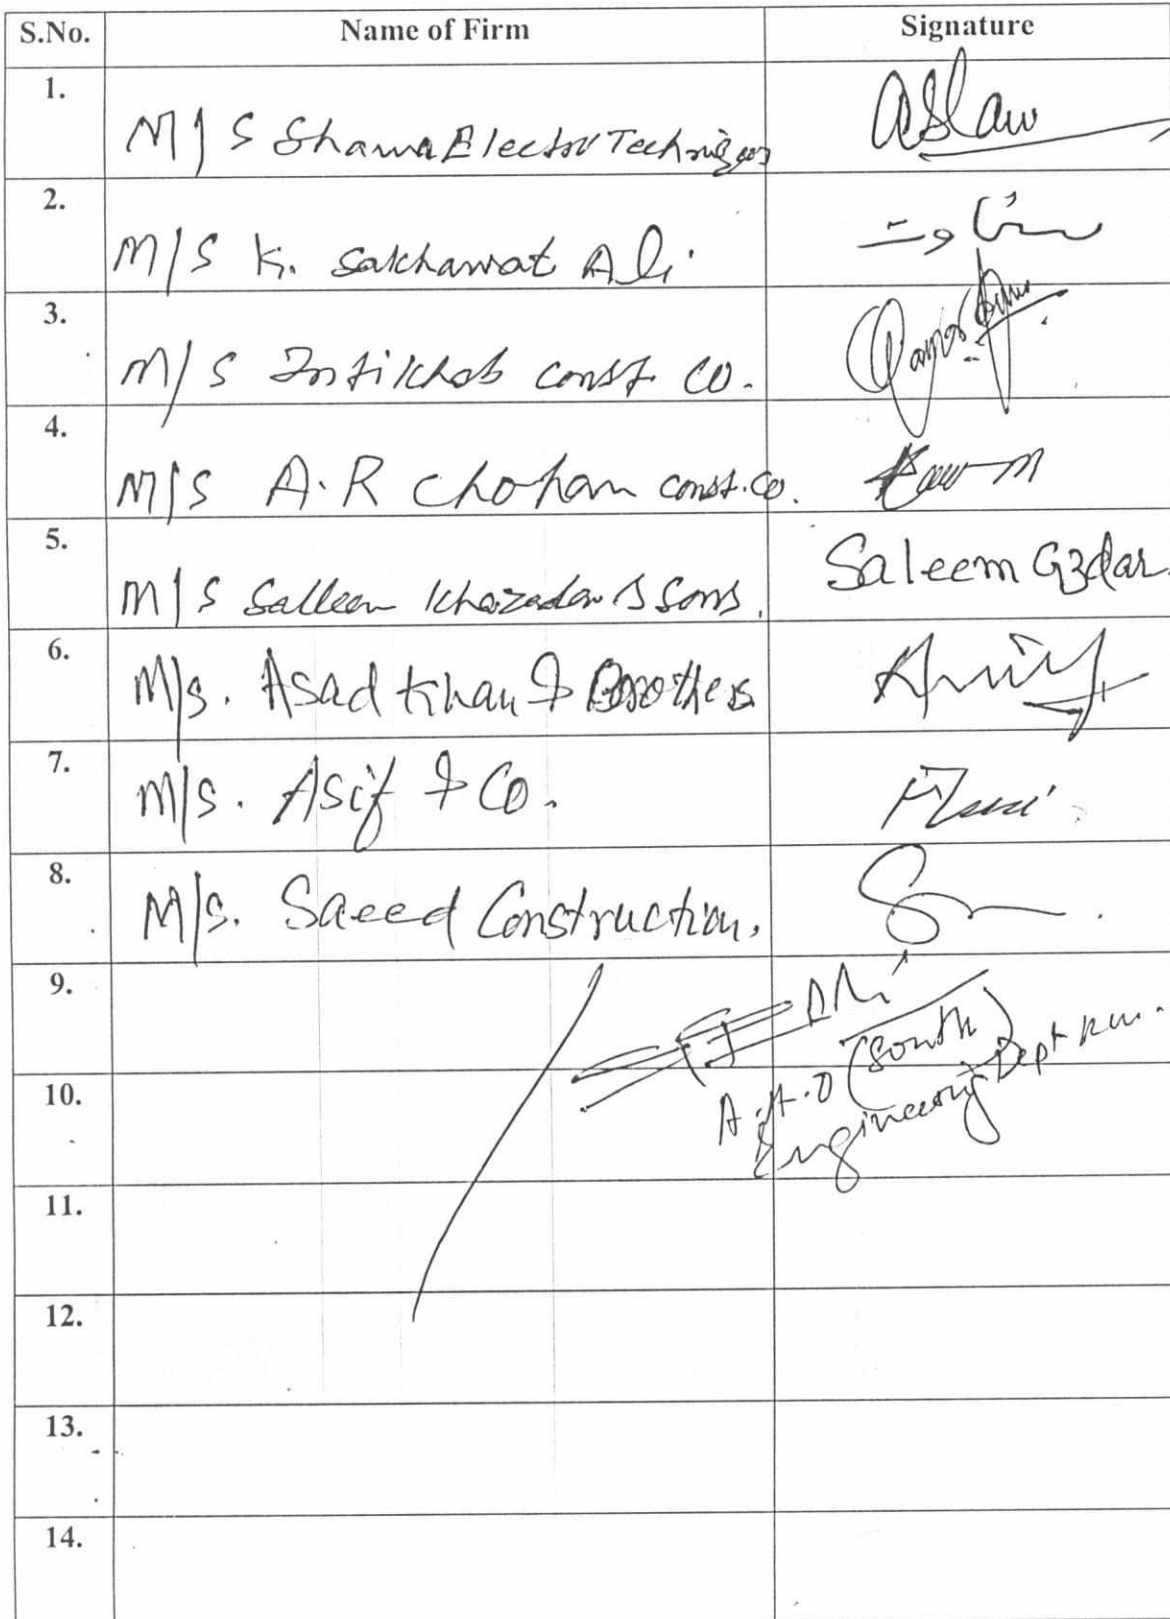 S.No. Name of Firm Signature
1. M/S Shama Electro Techniques
2. M/S K. Sakhawat Ali. سخاوت
3. M/S Intikhab const. Co.
4. M/S A.R Chohan const. Co.
5. M/S Salleem Khazadar & Sons. Saleem Gzdar.
6. M/s. Asad Khan & Brothers
7. M/s. Asif & Co.
8. M/s. Saeed Construction.
9.
(South)
10. Engineering Dept
11.
12.
13.
14.